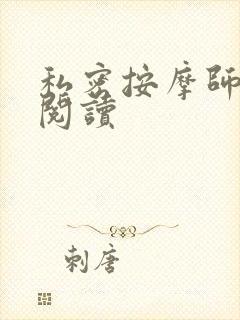 私密按摩師
閱讀
刺唐